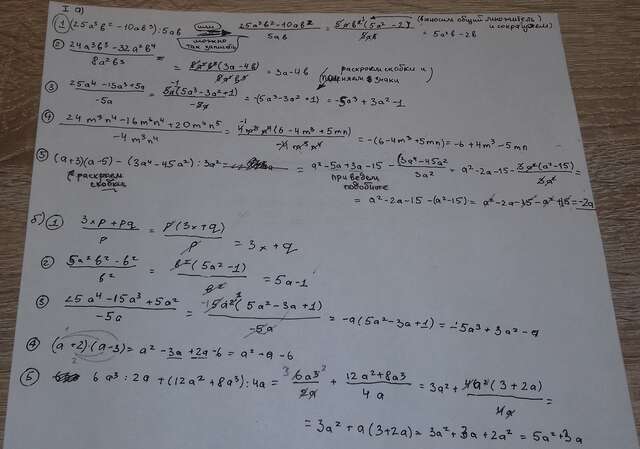 I а)
① (25a³b² - 10ab³) : 5ab или можно так записать = (25a³b² - 10ab²)/(5ab) = (5ab²(5a² - 2))/(5ab) = 5a²b - 2b (выносим общий множитель и сокращаем)
② (24a³b³ - 32a²b⁴)/(8a²b³) = (8a²b³(3a - 4b))/(8a²b³) = 3a - 4b
раскроем скобки и поменяем знаки
③ (25a⁴ - 15a³ + 5a)/(-5a) = (5a(5a³ - 3a² + 1))/(-5a) = -(5a³ - 3a² + 1) = -5a³ + 3a² - 1
④ (24m³n⁴ - 16m⁶n⁴ + 20m⁴n⁵)/(-4m³n⁴) = (4m³n⁴(6 - 4m³ + 5mn))/(-4m³n⁴) = -(6 - 4m³ + 5mn) = -6 + 4m³ - 5mn
⑤ (a+3)(a-5) - (3a⁴ - 45a²) : 3a² = = a² - 5a + 3a - 15 - (3a⁴ - 45a²)/(3a²) = a² - 2a - 15 - (3a²(a² - 15))/(3a²) =
раскроем скобки
приведем подобные
= a² - 2a - 15 - (a² - 15) = a² - 2a - 15 - a² + 15 = -2a
б) ① (3xp + pq)/p = (p(3x + q))/p = 3x + q
② (5a²b² - b²)/b² = (b²(5a² - 1))/b² = 5a - 1
③ (25a⁴ - 15a³ + 5a²)/(-5a) = (5a²(5a² - 3a + 1))/(-5a) = -a(5a² - 3a + 1) = -5a³ + 3a² - a
④ (a+2)(a-3) = a² - 3a + 2a - 6 = a² - a - 6
⑤ 6a³ : 2a + (12a² + 8a³) : 4a = 6a³/2a + (12a² + 8a³)/4a = 3a² + (4a²(3 + 2a))/4a =
= 3a² + a(3 + 2a) = 3a² + 3a + 2a² = 5a² + 3a